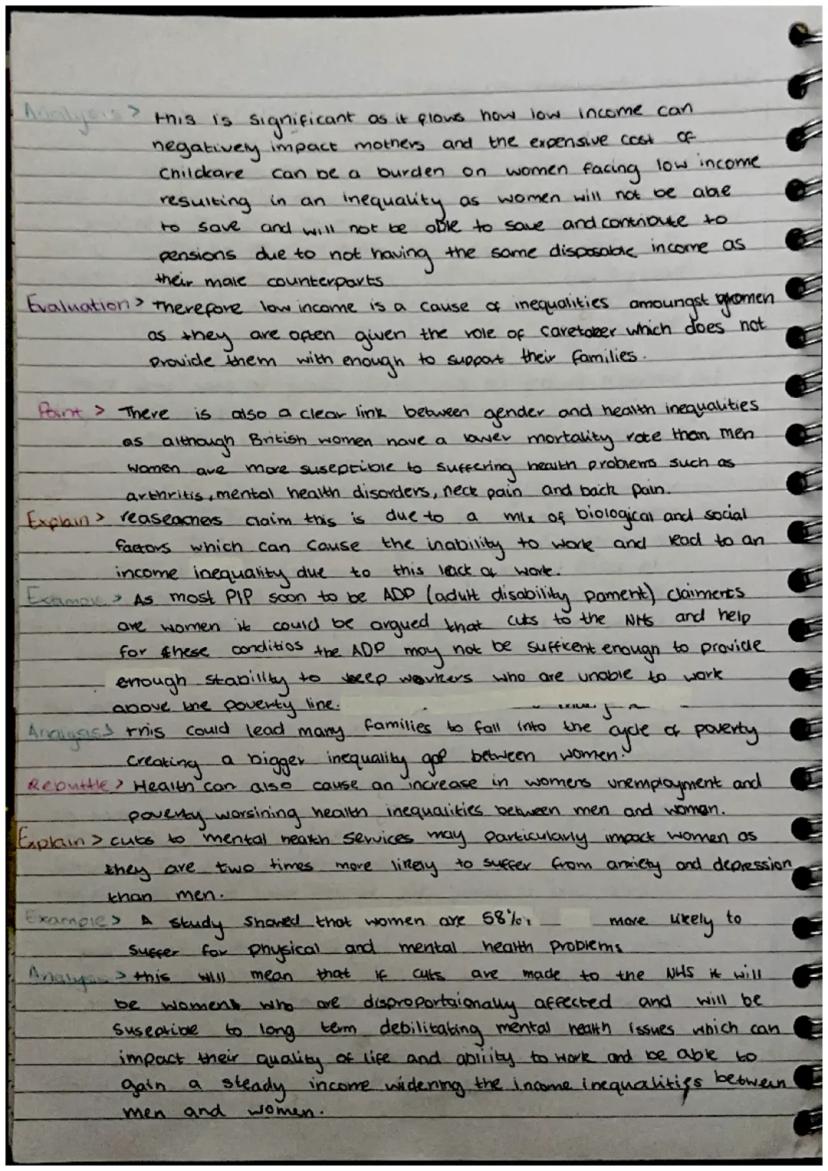 Analysis > this is significant as it flows how low income can
negatively impact mothers and the expensive cost of
childcare can be a burden on women facing low income
resulting in an inequality as women will not be able
to save and will not be able to save and contribute to
pensions due to not having the same disposable income as
their male counterparts
Evaluation > Therefore low income is a cause of inequalities amoungst women
as they are often given the role of caretaker which does not
provide them with enough to support their families.
Point > There is also a clear link between gender and health inequalities
as although British women have a lower mortality rate than men
women are more suseptible to suffering health problems such as
arthritis, mental health disorders, neck pain and back pain.
Explain > reaseachers claim this is due to a mix of biological and social
factors which can cause the inability to work and lead to an
income inequality due to this lack of work.
Example > As most PIP soon to be ADP (adult disability pament) claiments
are women it could be argued that cuts to the NHS and help
for these conditios the ADP may not be sufficent enough to provide
enough stability to keep workers who are unable to work
above the poverty line.
Analysis > This could lead many families to fall into the cycle of poverty
creating a bigger inequality gap between women.
Rebuttle > Health can also cause an increase in womens unemployment and
poverty worsining health inequalities between men and woman.
Explain > cuts to mental health services may particularly impact women as
they are two times more likely to suffer from anxiety and depression
than men.
Example > A study showed that women are 58% more likely to
suffer for physical and mental health problems
Analysis > this will mean that if cuts are made to the NHS it will
be women who are disproportaionally affected and will be
suseptible to long term debilitating mental health issues which can
impact their quality of life and ability to work and be able to
gain a steady income widening the income inequalities between
men and women.